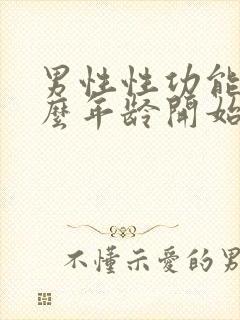 男性性功能
麼年齡開始
不懂示愛的男